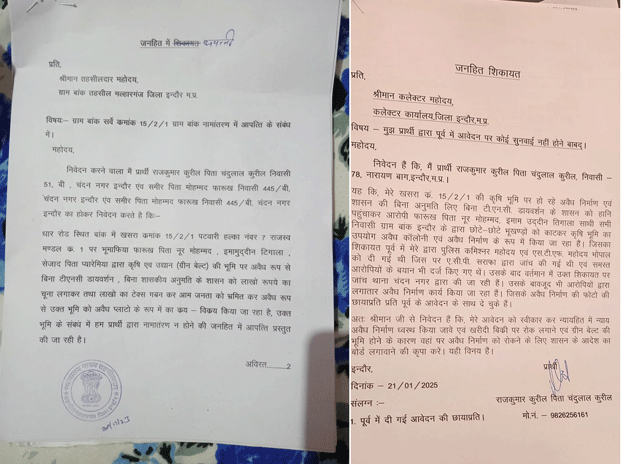 जनहित में शिकायत आपत्ती
प्रति,
श्रीमान तहसीलदार महोदय,
ग्राम बांक तहसील मल्हारगंज जिला इन्दौर म.प्र.
विषय:– ग्राम बांक सर्वे कमांक 15/2/1 ग्राम बांक नामांतरण में आपत्ति के संबंध
में।
महोदय,
निवेदन करने वाला मैं प्रार्थी राजकुमार कुरील पिता चंदुलाल कुरील निवासी
51, बी , चंदन नगर इन्दौर एंव समीर पिता मोहम्मद फारूख निवासी 445/बी,
चंदन नगर इन्दौर एंव समीर पिता मोहम्मद फारूख निवासी 445/बी, चंदन नगर
इन्दौर का होकर निवेदन करते है कि:–
धार रोड स्थित बांक में खसरा कमांक 15/2/1 पटवारी हल्का नंबर 7 राजस्व
मण्डल कं. 1 पर भूमाफिया फारूख पिता नूर मोहम्मद , इमामुद्दीन तिगाला ,
सेजाद पिता प्यारेमिया द्वारा कृषि एंव उद्यान (ग्रीन बेल्ट) की भूमि पर अवैध रूप से
बिना टीएनसी डायवर्शन , बिना शासकीय अनुमति के शासन को लाखों रूपये का
चूना लगाकर तथा लाखो का टेक्स गबन कर आम जनता को भ्रमित कर अवैध रूप
से उक्त भूमि को अवैध प्लाटो के रूप में का क्रय – विक्रय किया जा रहा है, उक्त
भूमि के संबंध में हम प्रार्थी द्वारा नामातरन न होने की जनहित में आपत्ति प्रस्तुत
की जा रही है।
अविरत.......2
जनहित शिकायत
प्रति,
श्रीमान कलेक्टर महोदय,
कलेक्टर कार्यालय,जिला इन्दौर,म.प्र.
विषय – मुझ प्रार्थी द्वारा पूर्व में आवेदन पर कोई सुनवाई नहीं होने बाबद्।
महोदय,
निवेदन हैं कि, मैं प्रार्थी राजकुमार कुरील पिता चंदुलाल कुरील, निवासी –
78, नारायण बाग,इन्दौर,म.प्र.।
यह कि, मेरे खसरा कं. 15/2/1 की कृषि भूमि पर हो रहे अवैध निर्माण एवं
शासन की बिना अनुमति लिए बिना टी.एन.सी. डायवर्शन के शासन को हानि
पहुंचाकर आरोपी फारूख पिता नूर मोहम्मद, इमाम उद्दीन तिगाला साथी सभी
निवासी ग्राम बांक इन्दौर के द्वारा छोटे–छोटे भूखण्डों को काटकर कृषि भूमि का
उपयोग अवैध कॉलोनी एवं अवैध निर्माण के रूप में किया जा रहा हैं। जिसका
शिकायत पूर्व में मेरे द्वारा पुलिस कमिश्नर महोदय एवं एस.टी.एफ. महोदय भोपाल
को दी गई थी जिस पर ए.सी.पी. सराफा द्वारा जांच की गई थी एवं समस्त
आरोपियों के बयान भी दर्ज किए गए थे। उसके बाद वर्तमान में उक्त शिकायत पर
जांच थाना चंदन नगर द्वारा की जा रही हैं। उसके बावजूद भी आरोपियो द्वारा
लगातार अवैध निर्माण कार्य किया जा रहा हैं। जिसके अवैध निर्माण की फोटो की
छायाप्रति प्रति पूर्व के आवेदन के साथ दे चुके हैं।
अतः श्रीमान जी से निवेदन हैं कि, मेरे आवेदन को स्वीकार कर न्यायहित में न्याय
अवैध निर्माण ध्वस्थ किया जावे एवं खरीदी बिकी पर रोक लगाने एवं ग्रीन बेल्ट की
भूमि होने के कारण वहां पर अवैध निर्माण को रोकने के लिए शासन के आदेश का
बोर्ड लगावाने की कृपा करे। यही विनय हैं।
इन्दौर,
प्रार्थी
दिनांक - 21/01/2025
संलग्न :-
राजकुमार कुरील पिता चंदुलाल कुरील
1. पूर्व में दी गई आवेदन की छायाप्रति।
मो.नं. – 9826256161